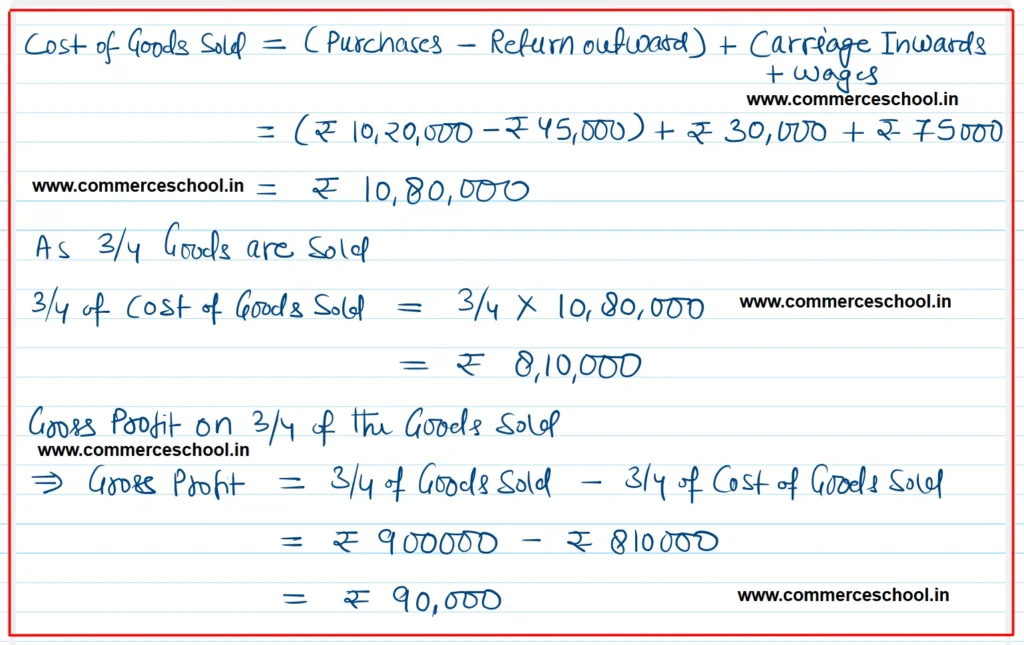 Cost of Goods Sold = (Purchases – Return outward) + Carriage Inwards
+ wages
www.commerceschool.in
= (₹ 10,20,000 – ₹ 45,000) + ₹ 30,000 + ₹ 75000
www.commerceschool.in = ₹ 10,80,000
As 3/4 Goods are Sold
3/4 of Cost of Goods Sold = 3/4 × 10,80,000 www.commerceschool.in
= ₹ 8,10,000
Gross Profit on 3/4 of the Goods Sold
www.commerceschool.in
⇒ Gross Profit = 3/4 of Goods Sold – 3/4 of Cost of Goods Sold
= ₹ 900000 – ₹ 810000
= ₹ 90,000 www.commerceschool.in